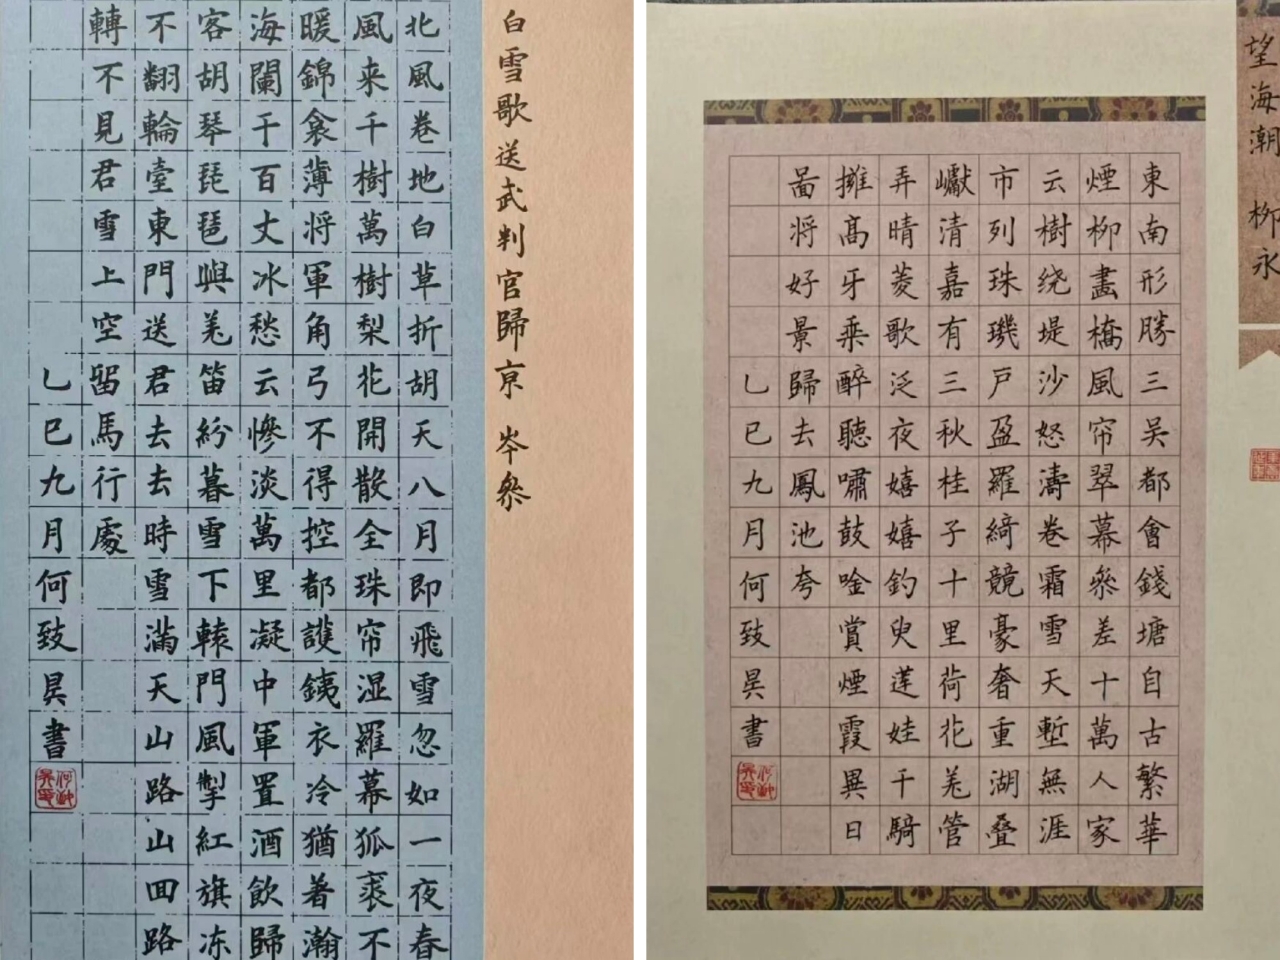 白雪歌送武判官歸亰 岑叅
北風卷地白草折胡天八月即飛雪忽如一夜春
風来千樹萬樹梨花開散全珠帘湿羅幕狐裘不
暖錦衾薄将軍角弓不得控都護銕衣冷猶著瀚
海闌干百丈冰愁云慘淡萬里凝中軍置酒飲歸
客胡琴琵琶與羌笛紛暮雪下轅門風掣紅旗冻
不翻輪臺東門送君去去時雪滿天山路山囬路
轉不見君雪上空留馬行處
乙巳九月何致昊書
望海潮 柳永
東南形勝三吴都會錢塘自古繁華
煙柳畫橋風帘翠幕叅差十萬人家
云樹绕堤沙怒濤卷霜雪天塹無涯
市列珠璣户盈羅綺競豪奢重湖叠
巘清嘉有三秋桂子十里荷花羌管
弄晴菱歌泛夜嬉嬉釣叟莲娃千騎
擁高牙乘醉聽嘯鼓唫賞煙霞異日
啚将好景歸去鳳池夸
乙巳九月何致昊書